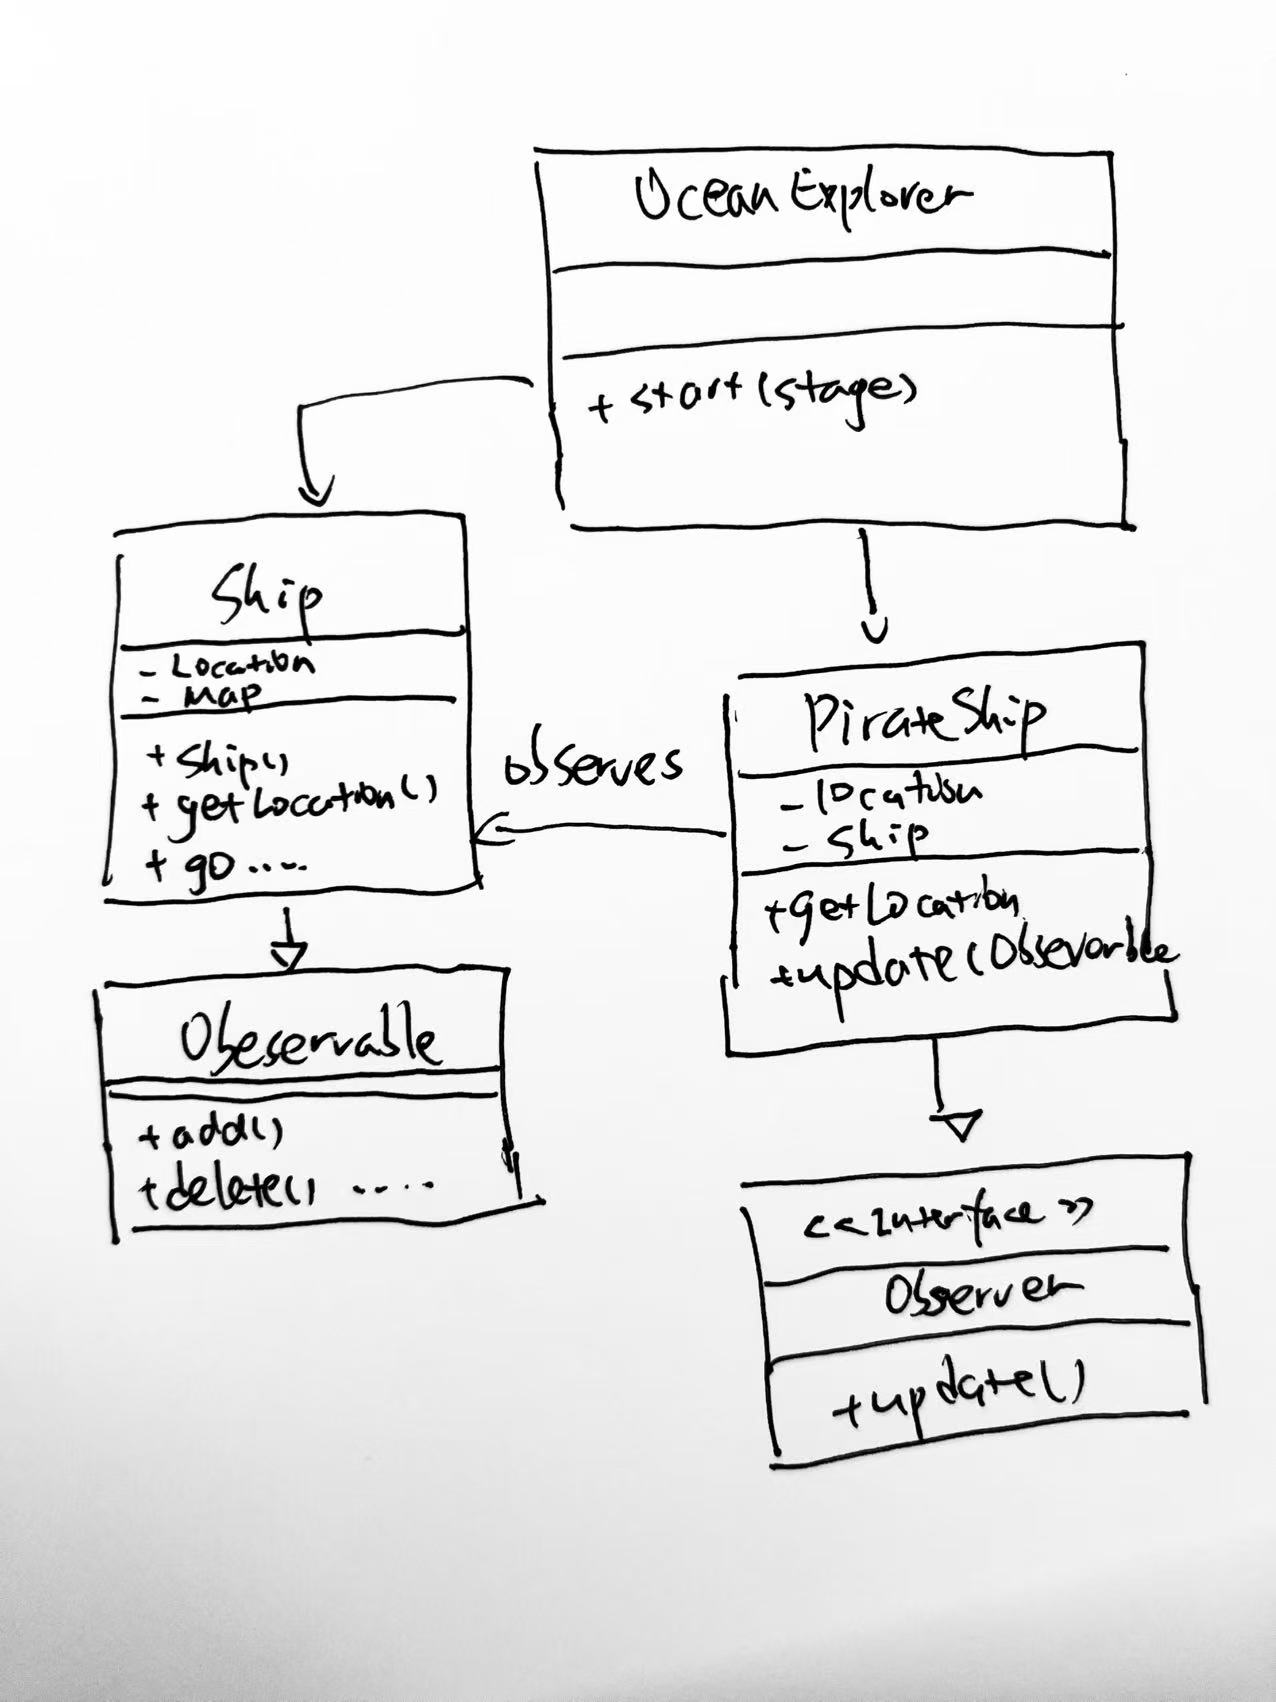 OceanExplorer
+ start(stage)
Ship
- Location
- Map
+ Ship()
+ getLocation()
+ go .....
observes
PirateShip
- location
- Ship
+getLocation
+update(Observarble
Obeservable
+add()
+delete() .....
<<Interface>>
Observer
+update()